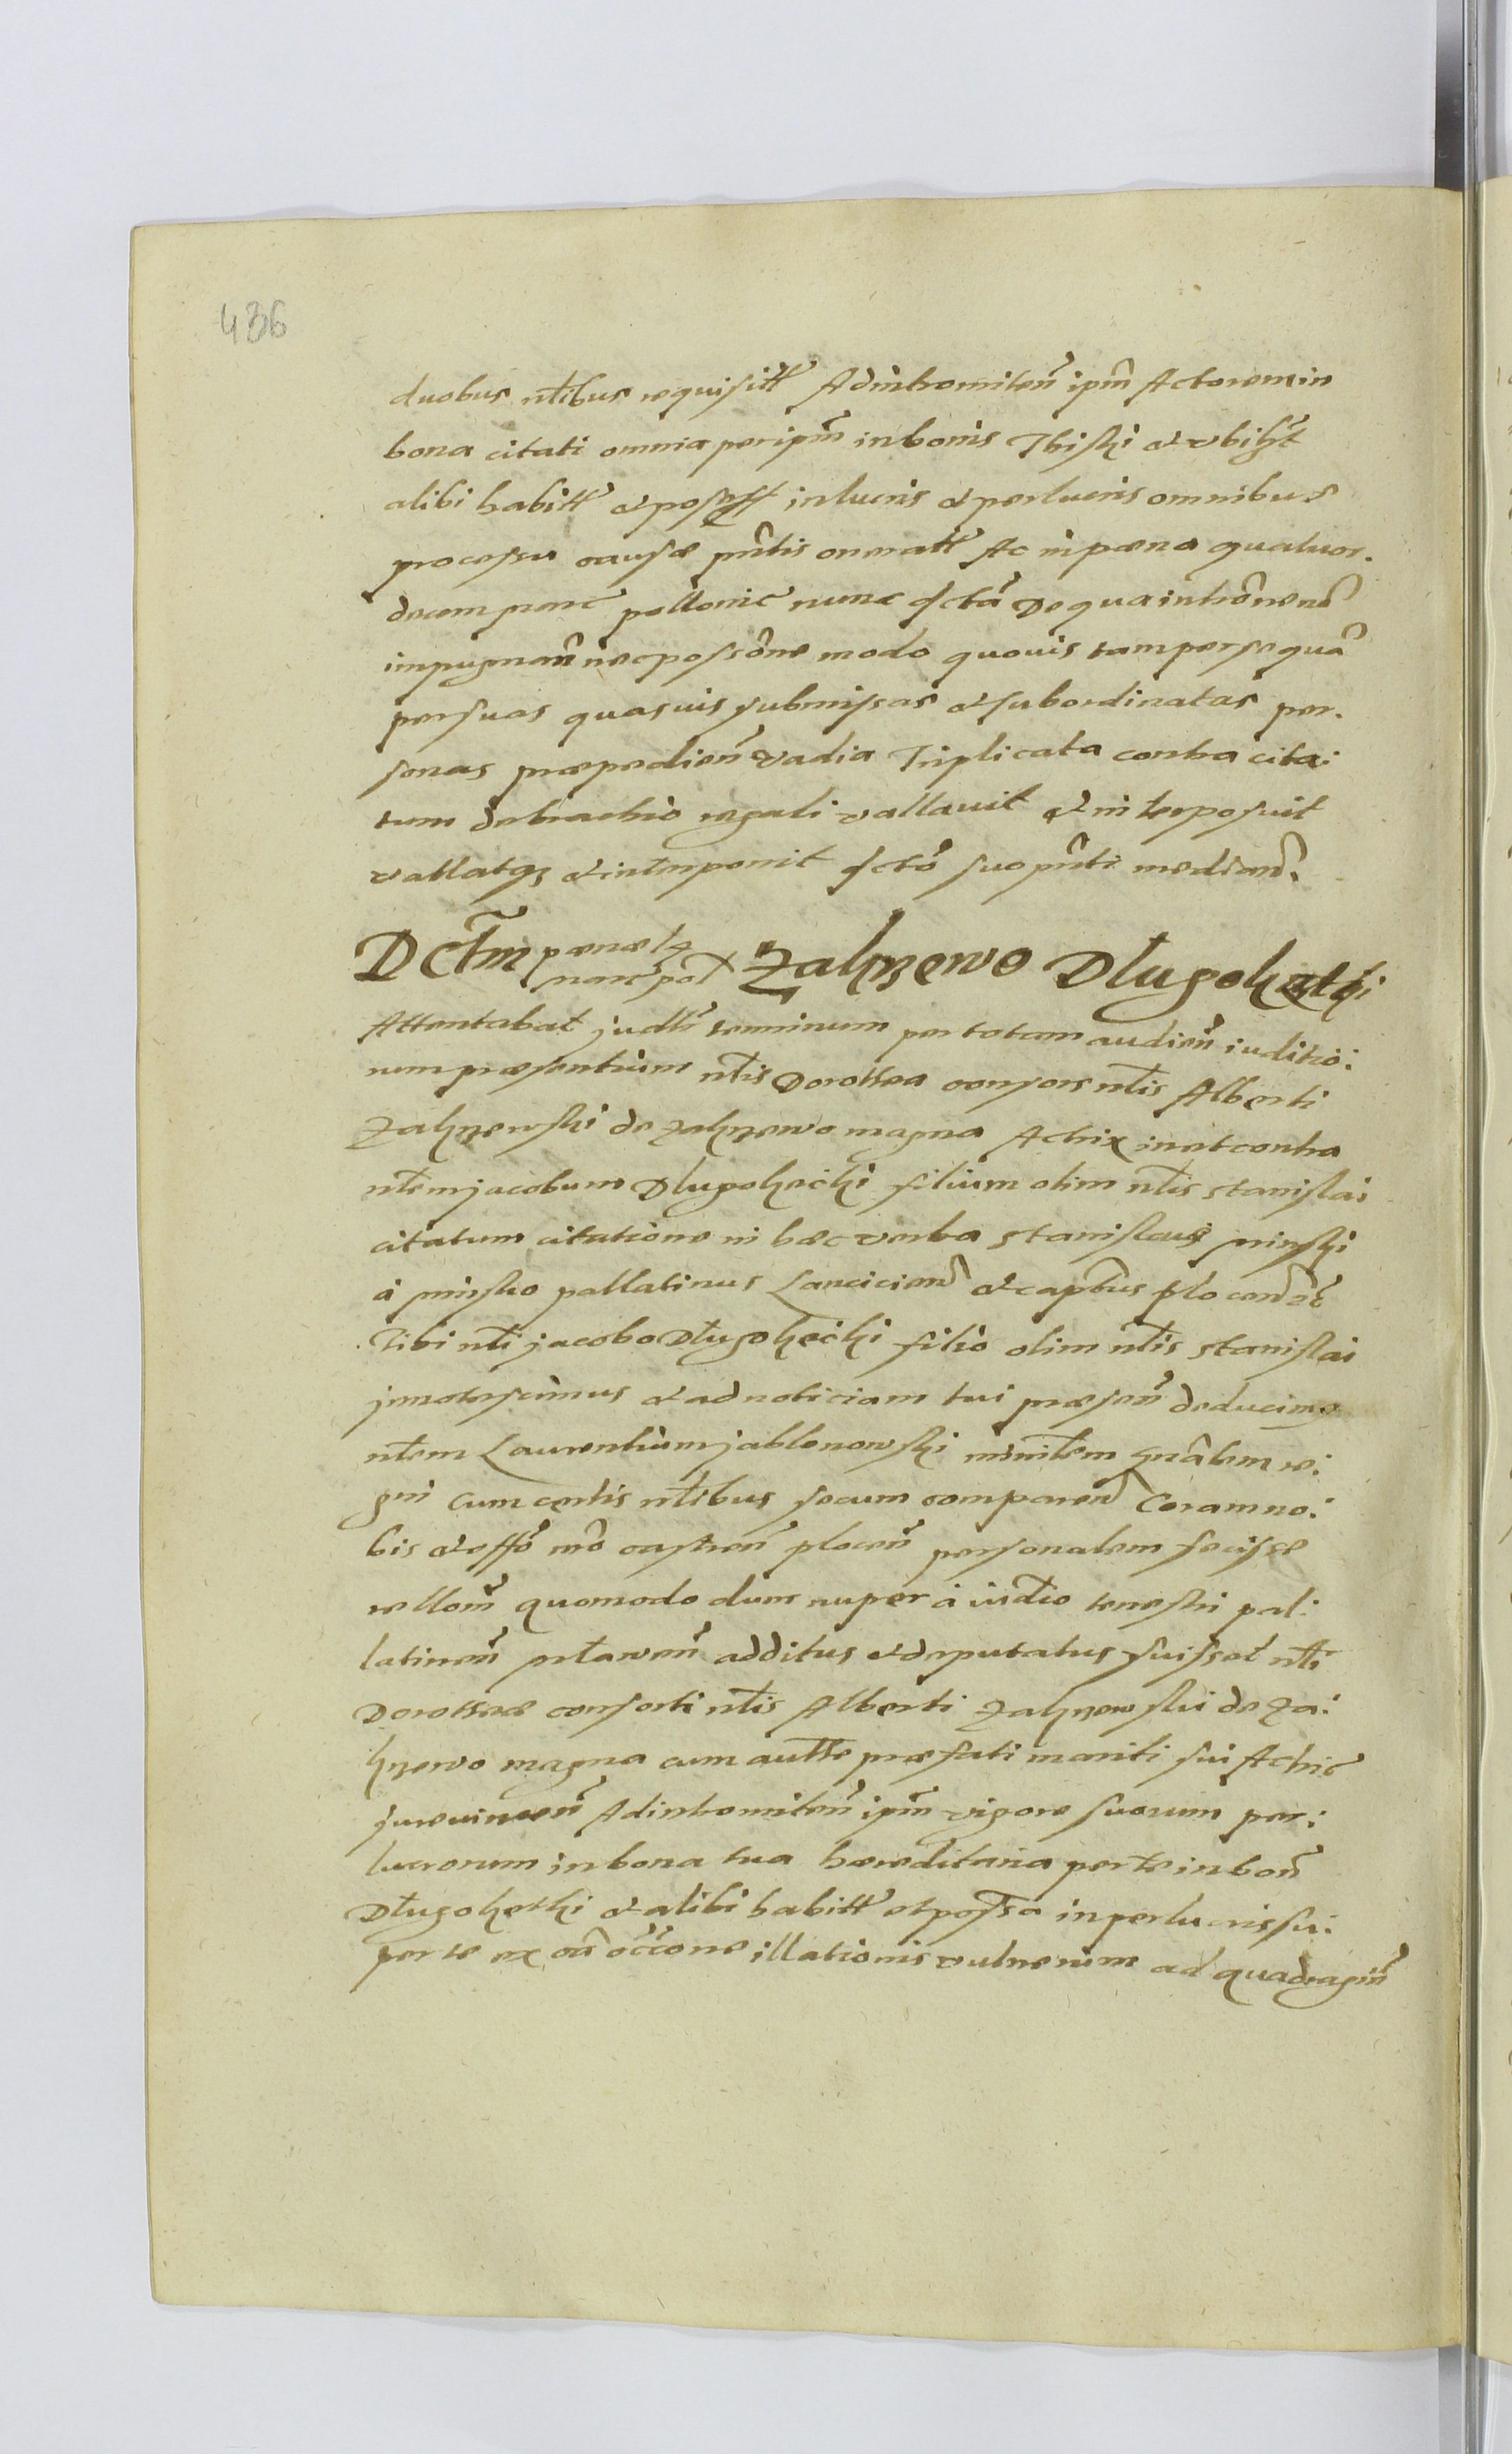 436
duobus nłibus requisitt Ad intromitteñ ipm Actorem in
bona citati omnia per ipm in bonis Thiski et ubiḥt
alibi habitt et possess in lucris et perlucris omnibus
processu causæ pñtis oneratt Ac in pæna quatuor.
decem marc pollonic nunc dctã De qua intrõnenẽ
impugnañ nec possõne modo quovis tam per se quã
per suas quasvis submissas et subordinatas per.
sonas præpedieñ vadia Triplicata contra cita:
tum de brachio regali vallavit et interposuit
vallatqz et interponit dcto suo pñti mediañ.
Dctm pænæ 14 marc pol Zahrzewo Długoheczki
Attentabat judlr terminum per totam audieñ iuditio:
rum præsentium nłis Dorothea consors nłis Alberti
Zahrzewski de Zahrzewo magna Actrix in et contra
nłem jacobum Dlugohechi filium olim nłis stanislai
citatum citatione in hæc verba stanislaus minski
à minsko pallatinus Lancicieñ et captneus ploceñ ꝛc
Tibi nłi jacobo Długohechi filio olim nłis stanislai
innotescimus et ad noticiam tui præseñ deducimꝰ
nłem Laurentium jablonowski minłem gnãlem re:
gni cum certis nłibus secum compareñ Coram no:
bis et offo nro castreñ ploceñ personalem fecisse
relloñ quomodo dum nuper à iudicio terrestri pal:
latineñ mławeñ additus et deputatus fuisset nłi
Dorotheæ consorti nłis Alberti Zahrzewski de Za:
hrzewo magna cum autte præfati mariti sui Actric
jurevinceñ Ad intromitteñ ipm vigore suorum per:
lucrorum in bona tua hæreditaria per te in boñ
Długohechi et alibi habitt et possessa in perlucris su:
per te ex oã occone illationis vulnerum ad quadragiñ